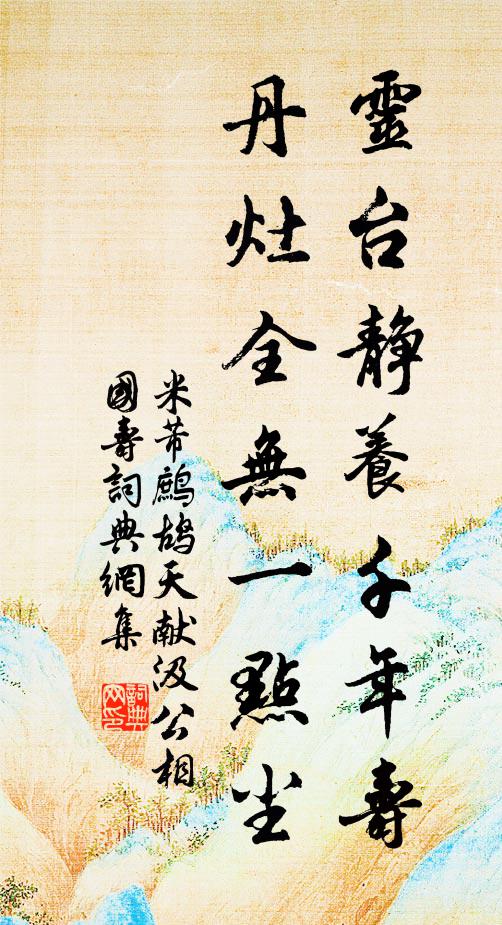 靈台静養千年壽
丹灶全無一點尘
米芾鷓鴣天献汲公相
國壽詞典網集
詞典
网印